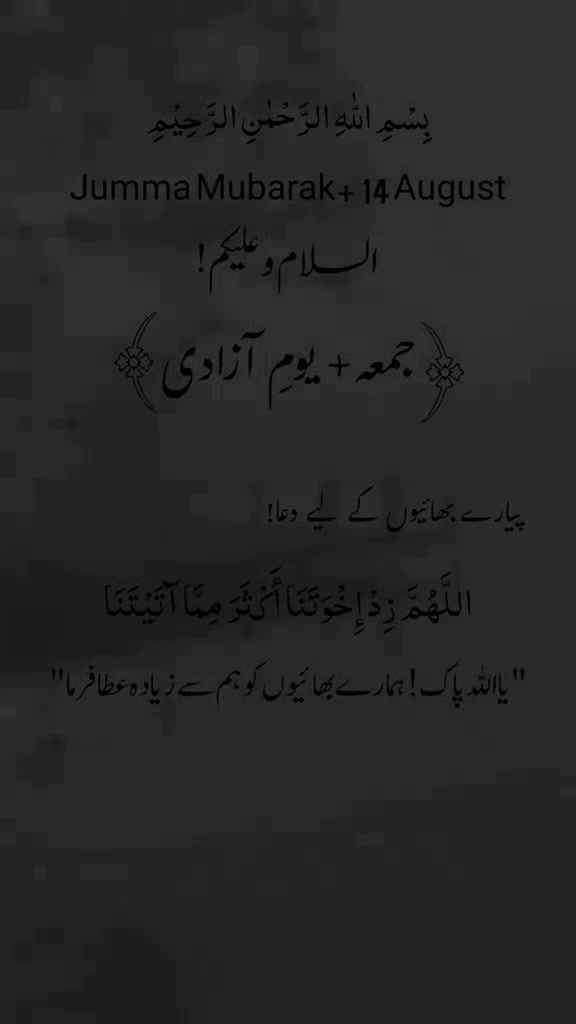 بِسْمِ اللّٰهِ الرَّحْمٰنِ الرَّحِيْمِ
Jumma Mubarak + 14 August
السلام و علیکم!
جمعہ + یومِ آزادی
پیارے بھائیوں کے لیے دعا!
اللَّهُمَّ زِدْ إِخْوَتَنَا أَكْثَرَ مِمَّا آتَيْتَنَا
"یااللہ پاک! ہمارے بھائیوں کو ہم سے زیادہ عطا فرما"